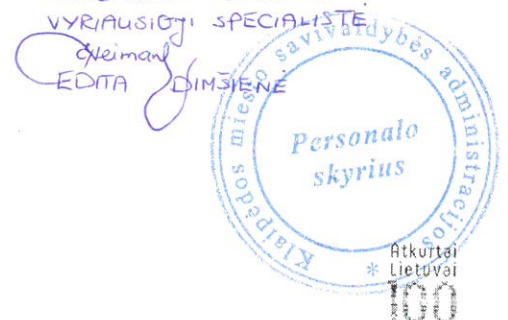 VYRIAUSIOJI SPECIALISTĖ
EDITA DIMŠIENĖ
Klaipėdos miesto savivaldybės administracijos
Personalo
skyrius
*
Atkurtai
Lietuvai
100